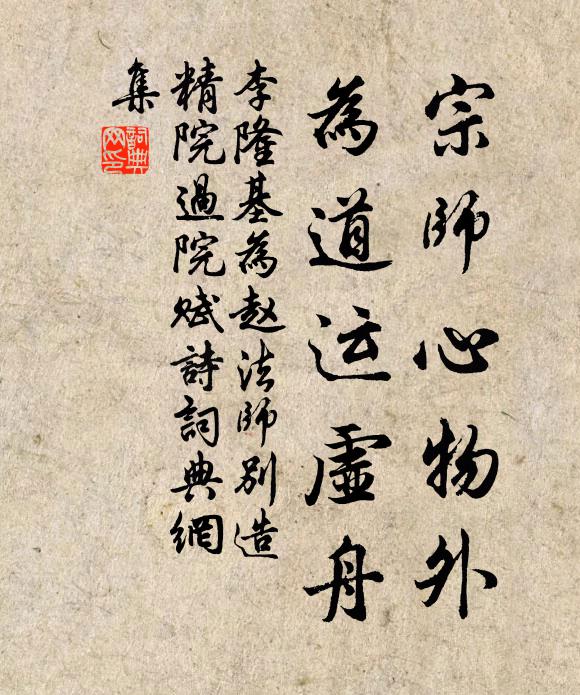 宗師心物外
為道运虛舟
李隆基為赵法師別造
精院過院赋詩詞典網
集
詞典
网印